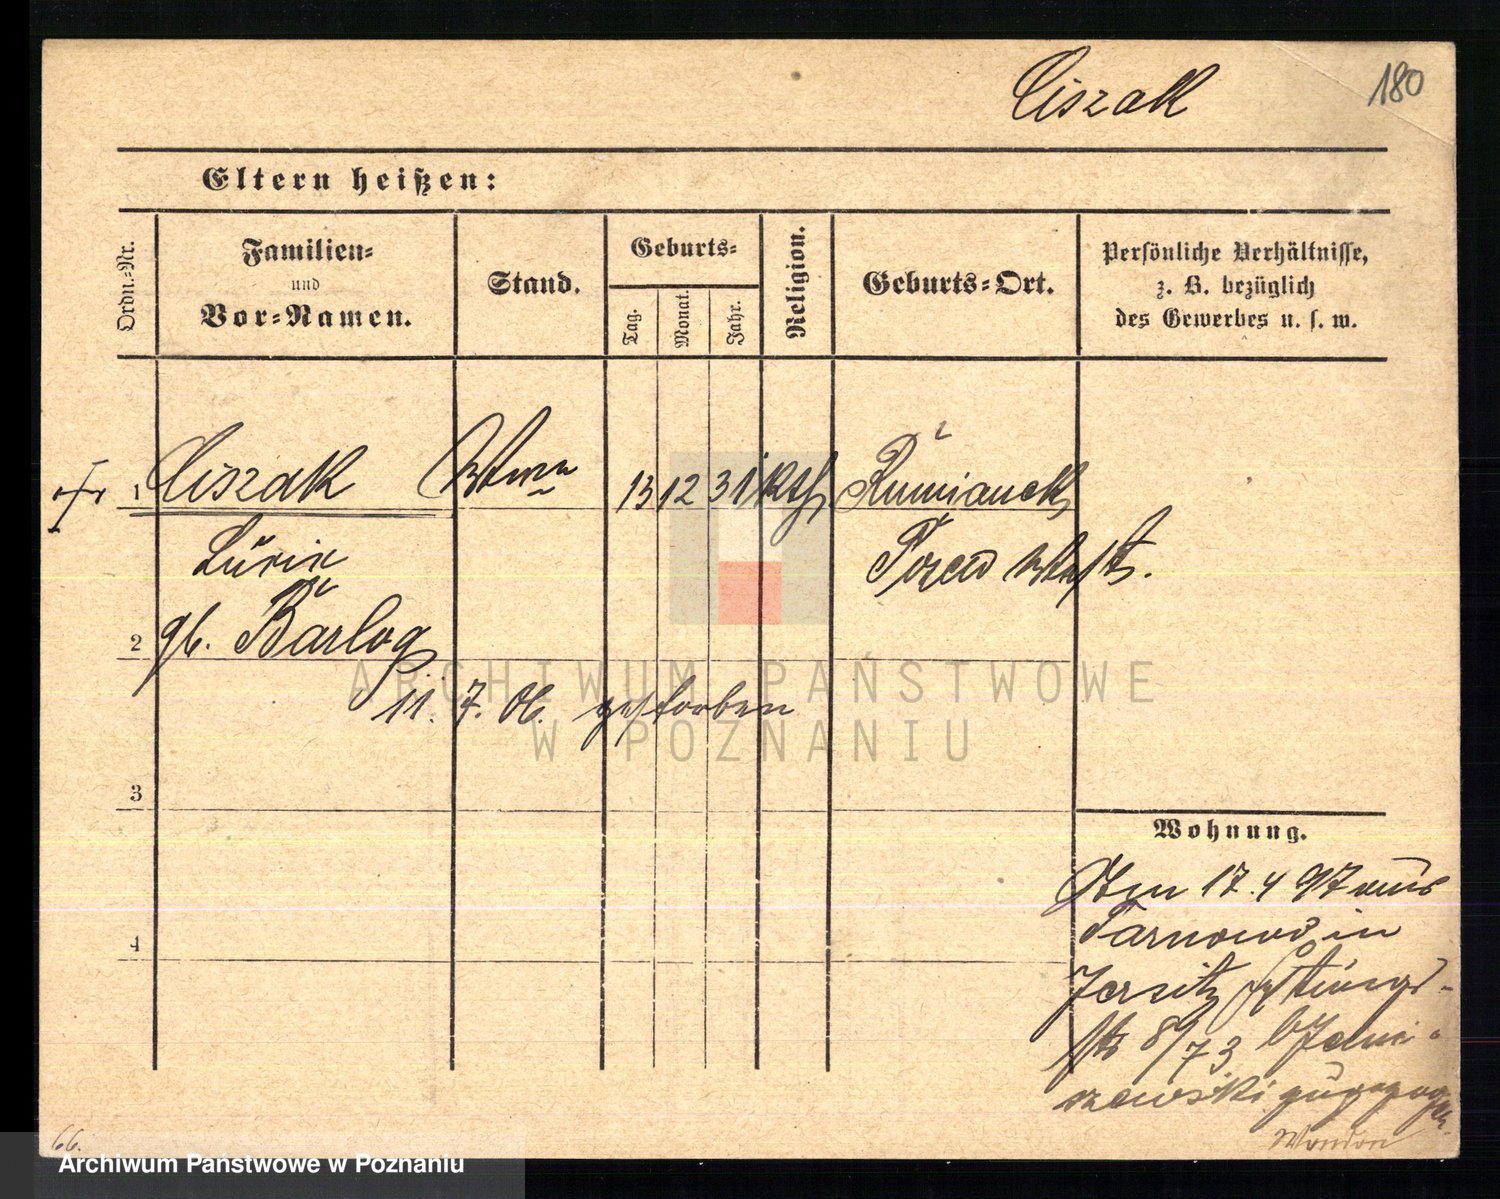 Ciszak
180
Eltern heißen:
Ordn.-Nr.
Familien-
und
Vor-Namen.
Stand.
Geburts-
Tag.
Monat.
Jahr.
Religion.
Geburts-Ort.
Persönliche Verhältnisse,
z. B. bezüglich
des Gewerbes u. s. w.
1 Ciszak Wtwe 13 12 31 kth Rumianek
Posen
2 gb. Barlog
11. 7. 06. gestorben
ARCHIWUM PAŃSTWOWE
W POZNANIU
3
Wohnung.
Am 17.4 97 aus
4 Tarnowo in
Jersitz
8/73 b/
zugezogen
66.
Archiwum Państwowe w Poznaniu